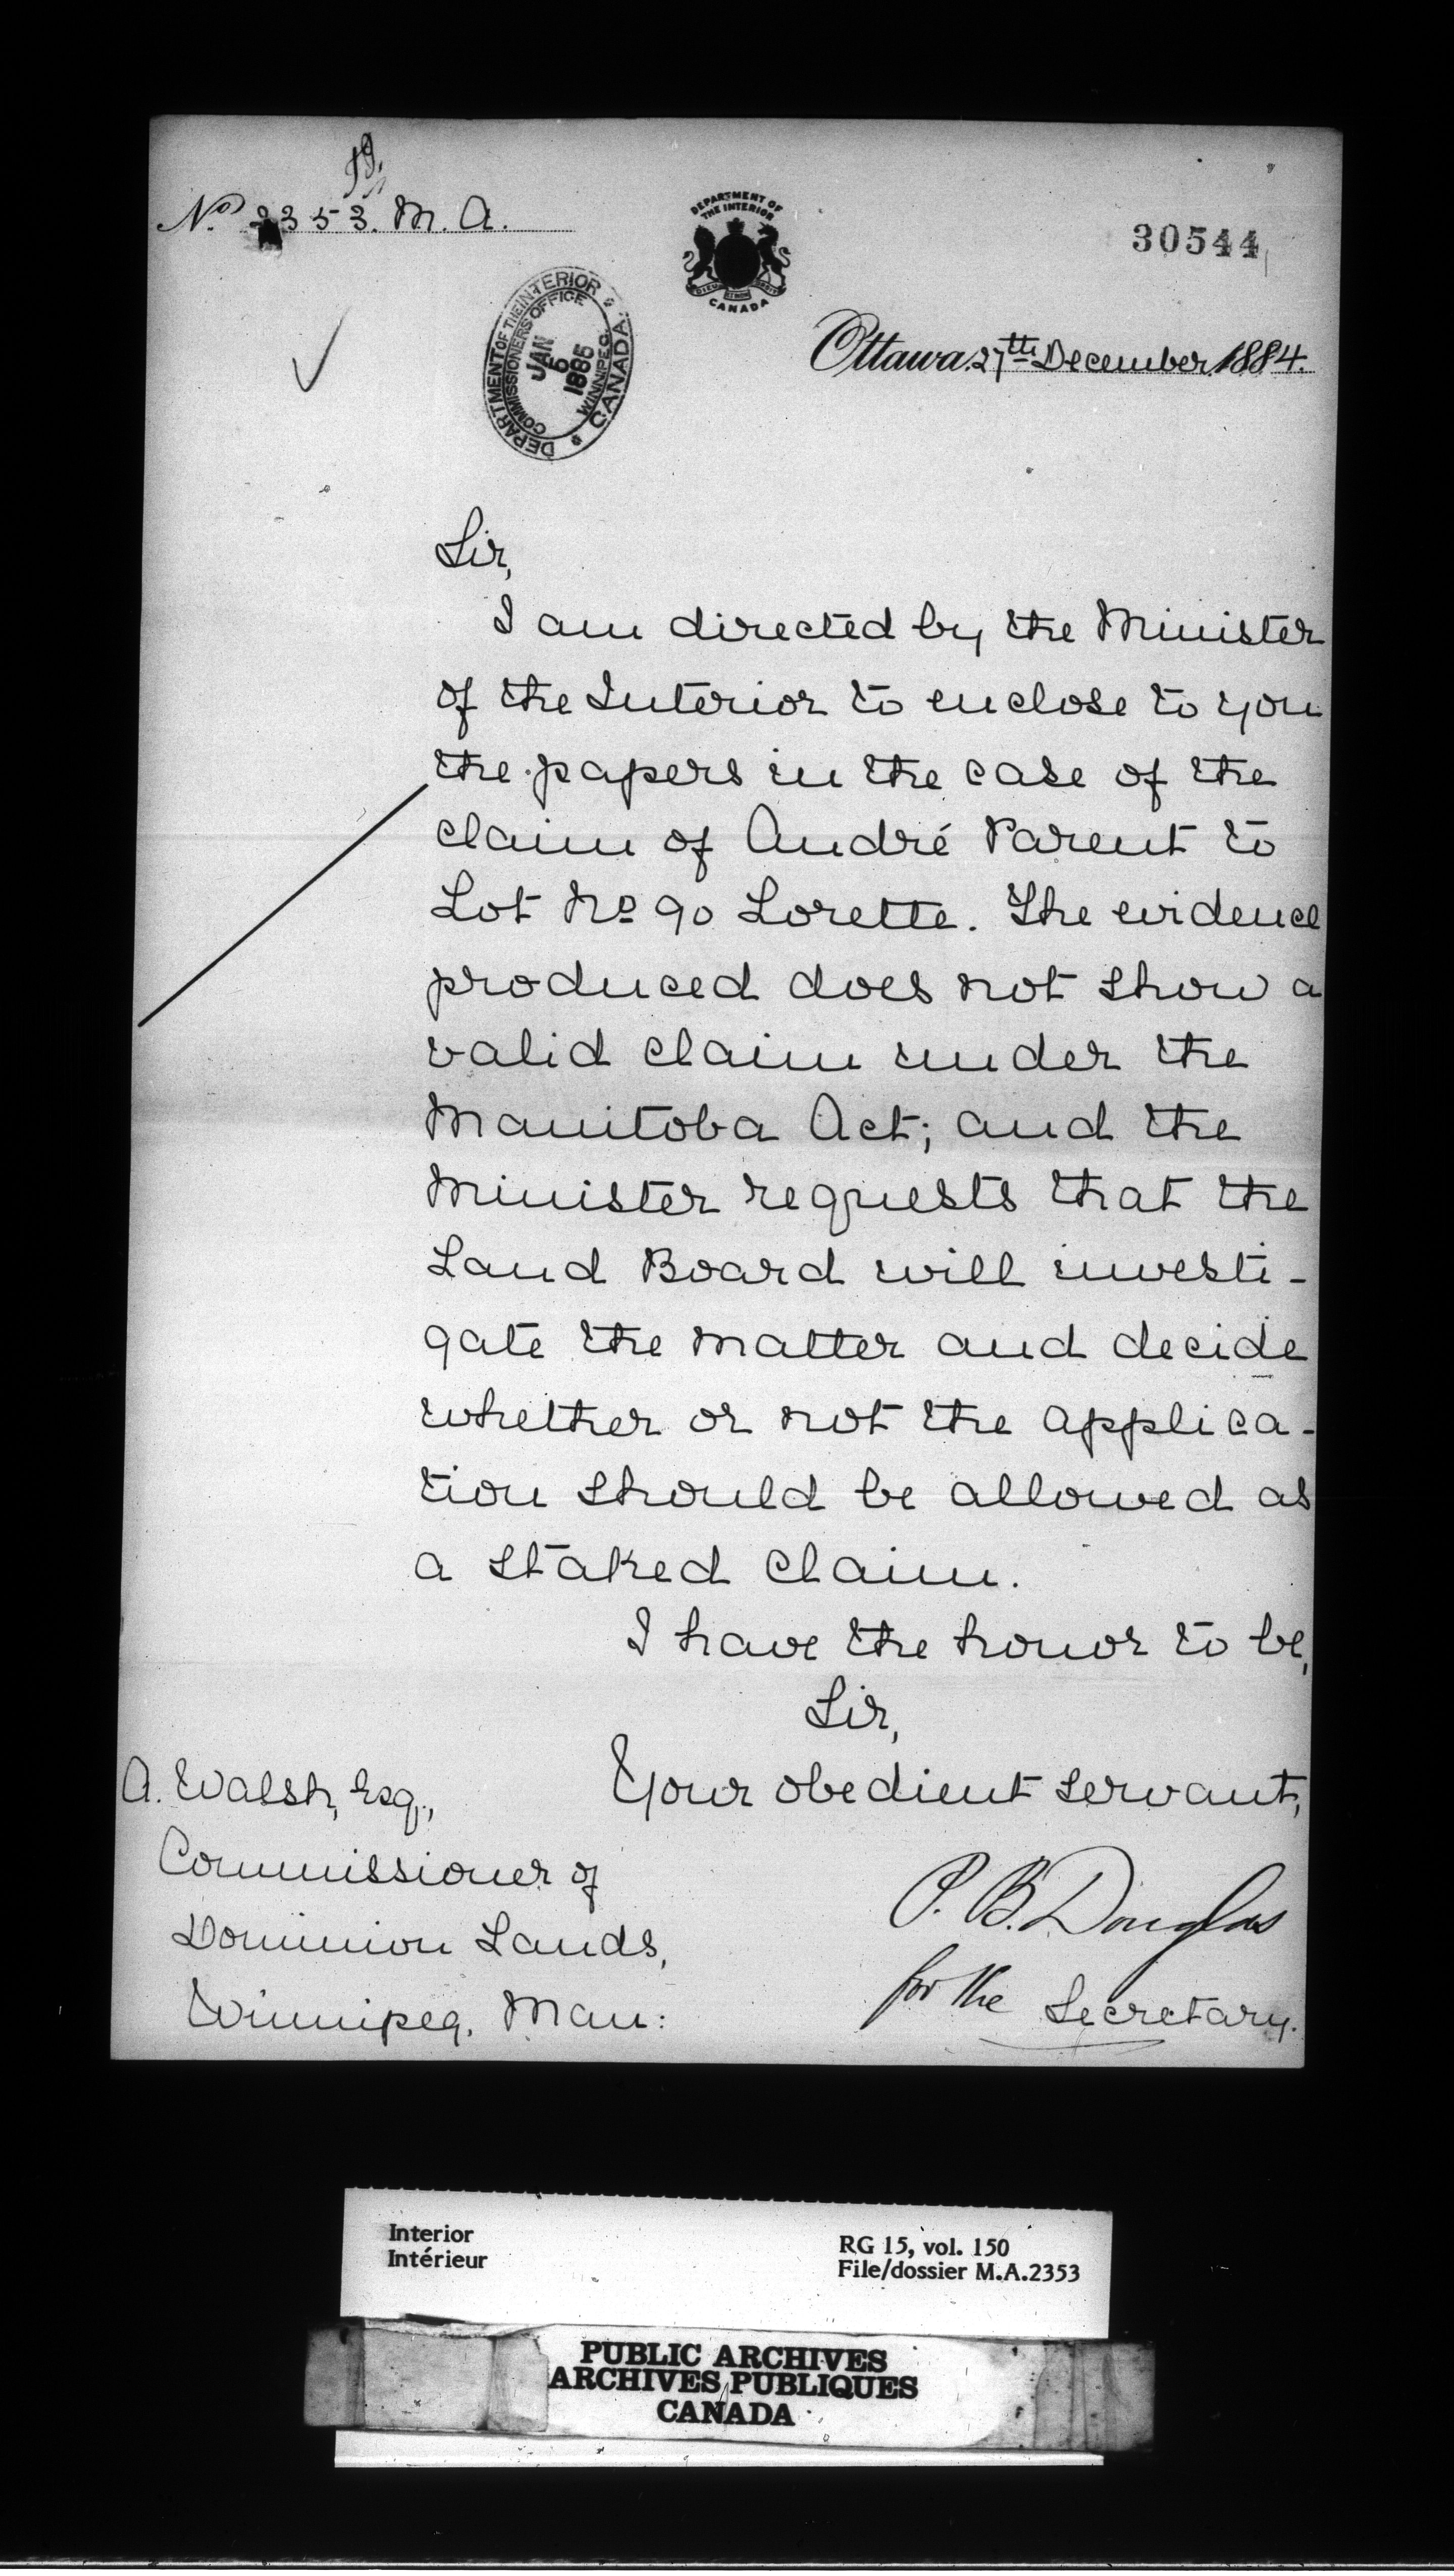 No 2353. M. A.
DEPARTMENT OF
THE INTERIOR
CANADA
30544
DEPARTMENT OF THE INTERIOR
COMMISSIONERS OFFICE
JAN
5
1885
WINNIPEG
CANADA.
Ottawa, 27th December, 1884.
Sir,
I am directed by the Minister
of the Interior to enclose to you
the papers in the case of the
claim of André Parent to
Lot No 90 Lorette. The evidence
produced does not show a
valid claim under the
Manitoba Act; and the
Minister requests that the
Land Board will investi-
gate the matter and decide
whether or not the applica-
tion should be allowed as
a staked claim.
I have the honor to be,
Sir,
Your obedient servant,
P. B. Douglas
for the Secretary.
A. Walsh, Esq.,
Commissioner of
Dominion Lands,
Winnipeg, Man:
Interior
Intérieur
RG 15, vol. 150
File/dossier M.A.2353
PUBLIC ARCHIVES
ARCHIVES PUBLIQUES
CANADA